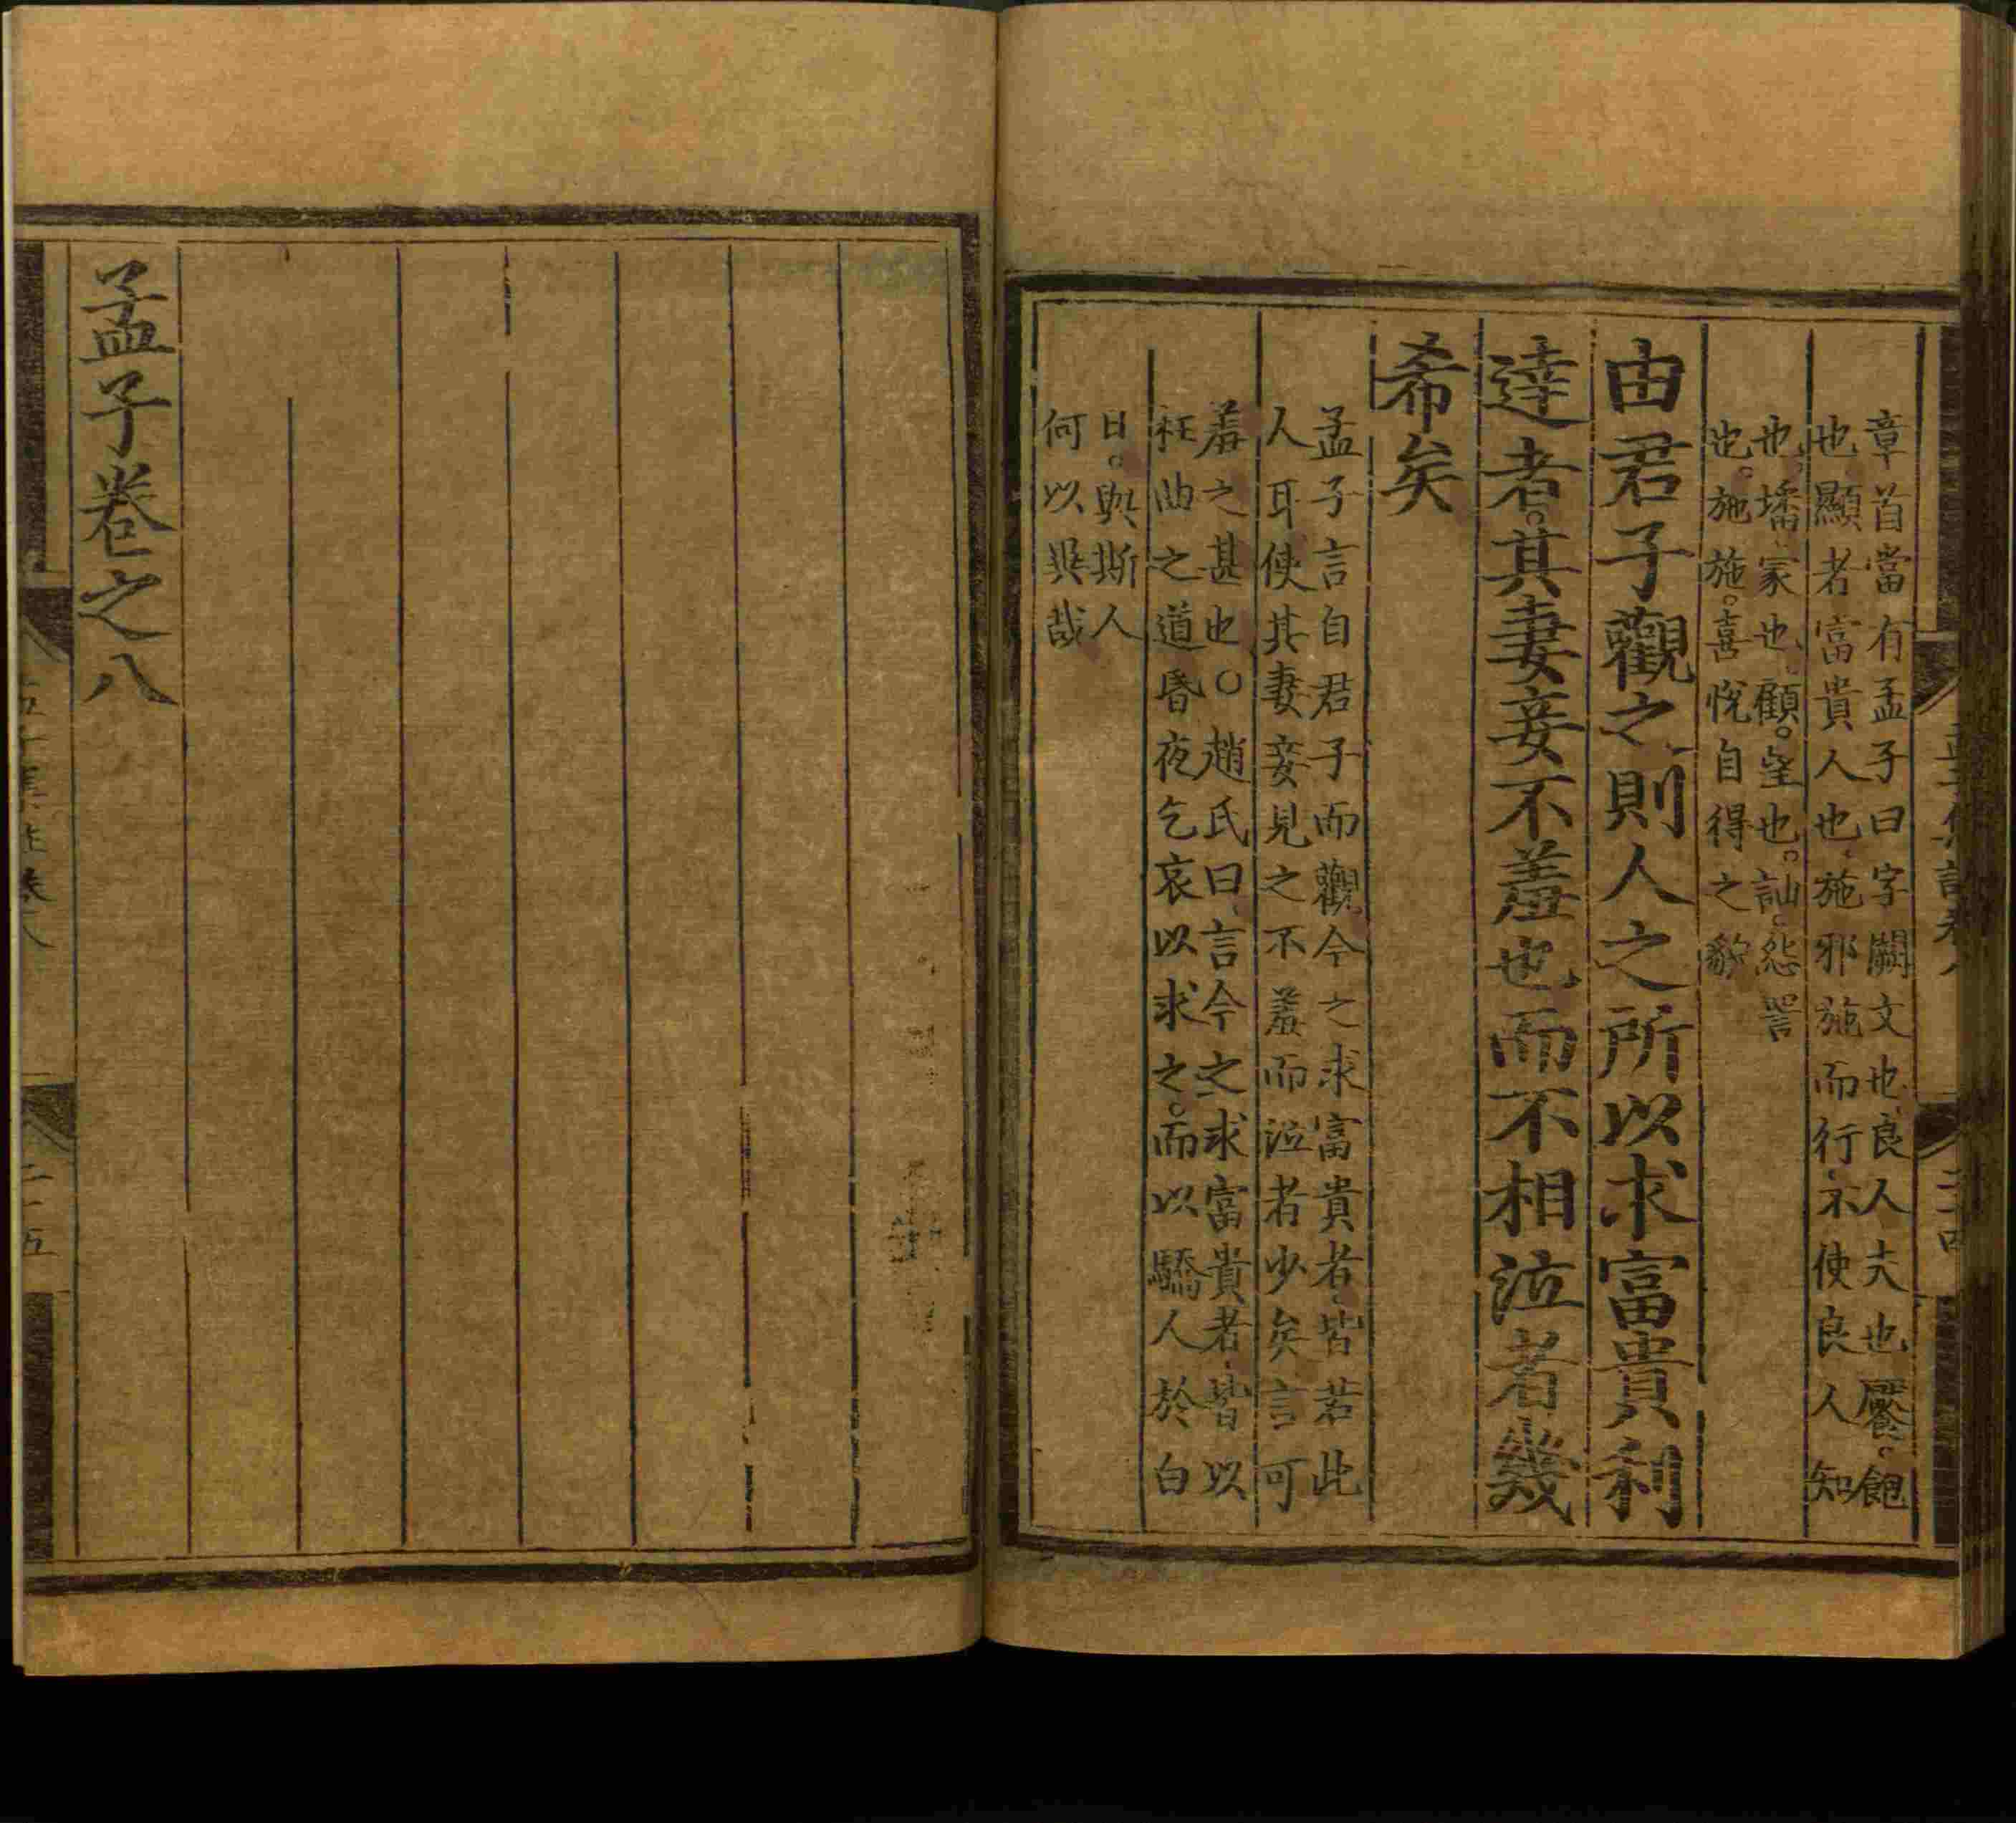 章首當有孟子曰字闕文也良人夫也饜飽
也顯者富貴人也施邪施而行不使良人知
也墦冢也顧望也訕怨詈
也施施喜悅自得之貌
由君子觀之則人之所以求富貴利
達者其妻妾不羞也而不相泣者幾
希矣
孟子言自君子而觀今之求富貴者皆若此
人耳使其妻妾見之不羞而泣者少矣言可
羞之甚也○趙氏曰言今之求富貴者皆以
枉曲之道昏夜乞哀以求之而以驕人於白
日與斯人
何以異哉
孟子卷之八